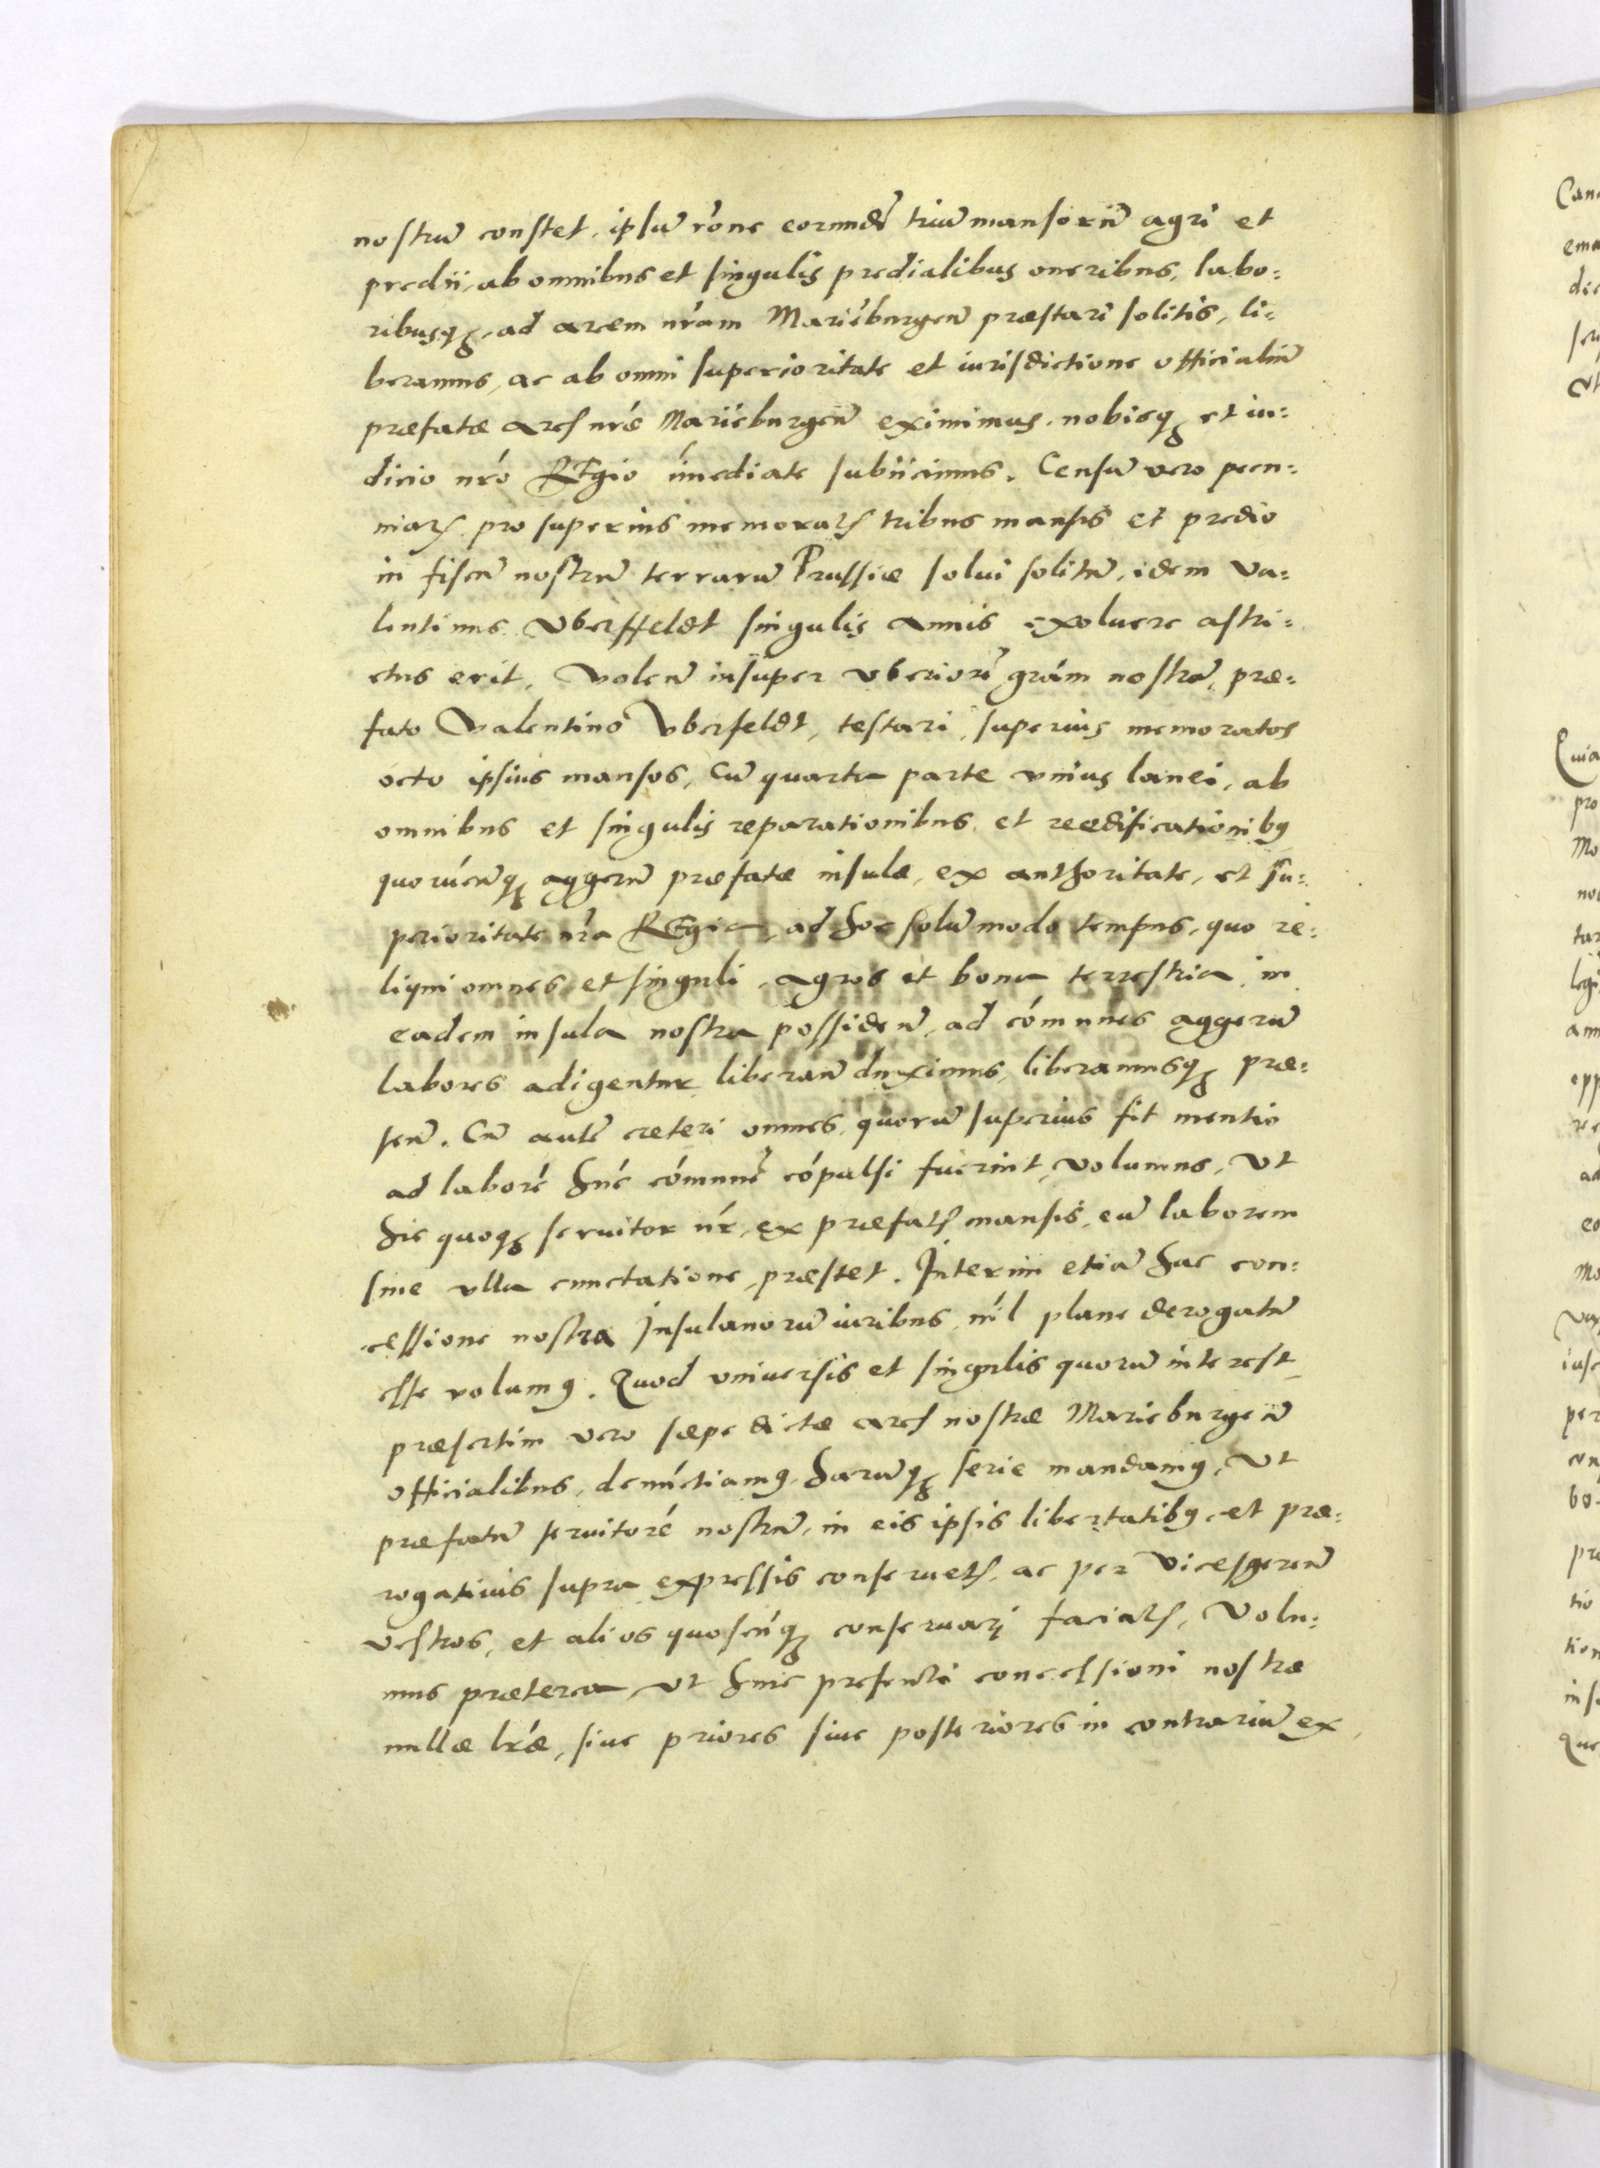 nostrū constet, ipsū rōne eorundē triū mansorū agri et
predii, ab omnibus et singulis predialibus oneribus, labo:
ribusq3, ad arcem nrām Marieburgeñ præstari solitis, li:
beramus, ac ab omni superioritate et iurisdictione officialiū
præfatæ arcis nræ Marieburgeñ eximimus, nobisq3 et iu:
dicio nrō REgio īmediate subiicimus. Censū vero pecu:
niariū pro superius memoratis tribus mansis et predio
in fiscū nostrū terrarū Prussiæ solui solitū, idem Va:
lentinus Vberffeldt singulis annis exoluere astri:
ctus erit. Volen̄ insuper vberiorē grām nostrā, præ:
fato Valentino Vberfeldt, testari, superius memoratos
octo ipsius mansos, cū quarta parte vnius lanei, ab
omnibus et singulis reparationibus et reedificationib9
quorūcunq3 aggerū præfatæ insulæ, ex authoritate, et su:
perioritate nrā REgia, ad hoc solummodo tempus, quo re:
liqui omnes et singuli, agros et bona terrestria in
eadem insula nostra possiden̄, ad cōmunes aggerū
labores adigentur, liberan̄ duximus, liberamusq3 præ:
sen̄. Cū autē cæteri omnes, quorū superius fit mentio
ad laborē hūc cōmunē cōpulsi fuerint, volumus, vt
hic quoq3 seruitor nr̄, ex præfatis mansis, eū laborem
sine vlla cunctatione, præstet. Interim etiā hac con:
cessione nostra Insulanorū iuribus, nīl plane derogatū
esse volum9. Quod vniuersis et singulis quorū interest,
præsertim vero sæpe dictæ arcis nostræ Marieburgeñ
officialibus, denūctiam9 harūq3 serie mandam9, Vt
præfatū seruitorē nostrū, in eis ipsis libertatib9, et præ:
rogatiuis supra expressis conseruetis, ac per Vicesgeren̄
vestros, et alios quoscūq3 conseruari faciatis, Volu:
mus præterea, vt huic presenti concessioni nostræ
nullæ lræ, siue priores siue posteriores in contrariū ex